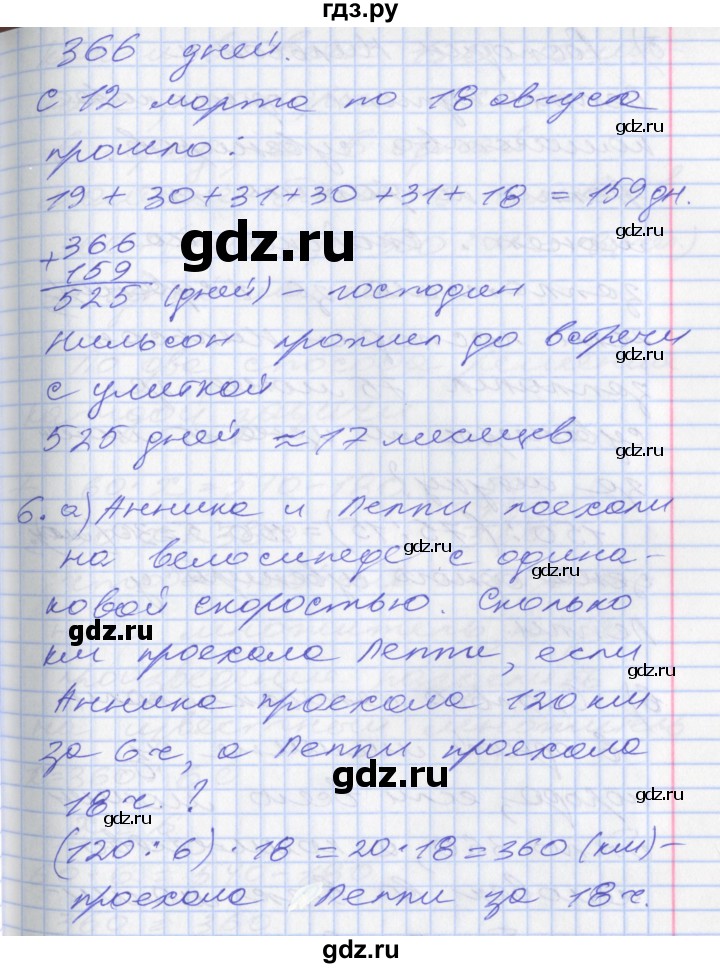 гдз.ру
366 дней.
С 12 марта по 18 августа
gdz.ru
прошло:
gdz.ru
19 + 30 + 31 + 30 + 31 + 18 = 159 дн.
gdz.ru
+ 366
159
525 (дней) – господин
gdz.ru
Нильсон прожил до встречи
gdz.ru
gdz.ru
с улиткой
525 дней ≈ 17 месяцев
6. а) Анника и Пеппи поехали
на велосипеде с одина-
gdz.ru
gdz.ru
ковой скоростью. Сколько
gdz.ru
км проехала Пеппи, если
Анника проехала 120 км
за 6 ч, а Пеппи проехала
gdz.ru
18 ч. ?
gdz.ru
gdz.ru
(120 : 6) · 18 = 20 · 18 = 360 (км) –
проехала Пеппи за 18 ч.
gdz.ru
gdz.ru
gdz.ru